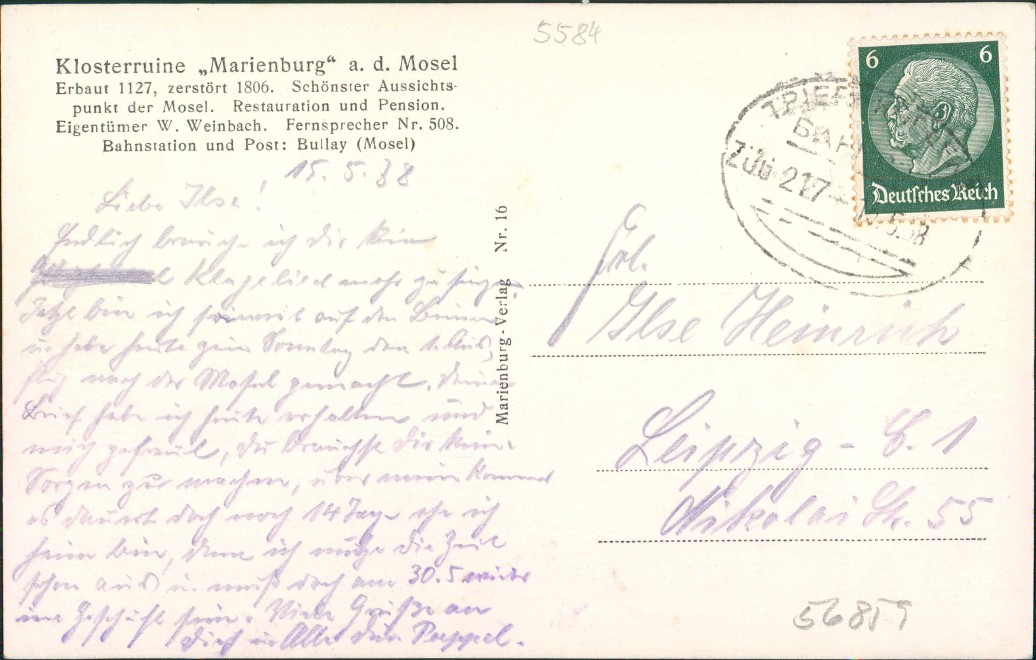 5584
Klosterruine „Marienburg“ a. d. Mosel
Erbaut 1127, zerstört 1806. Schönster Aussichts-
punkt der Mosel. Restauration und Pension.
Eigentümer W. Weinbach. Fernsprecher Nr. 508.
Bahnstation und Post: Bullay (Mosel)
15. 5. 38
Liebe Ilse!
Endlich brauch ich dir kein
Klagelied mehr zu singen
Jetzt bin ich soweit auf den Beinen
u. habe heute zum Sonntag den 1. Aus-
flug nach der Mosel gemacht, deinen
Brief habe ich heute erhalten und
mich gefreut, du brauchst dir keine
Sorgen zu machen, über mein Kommen
es dauert doch noch 14 Tage ehe ich
heim bin, denn ich nütze die Zeit
schon aus u. muß doch am 30.5 wieder
im Geschäft sein. Viele Grüße an
dich u. Alle dein
Marienburg-Verlag Nr. 16
6 6
Deutsches Reich
ZÜG 217
Frl.
Ilse Heinrich
Leipzig - C. 1
Nikolai Str. 55